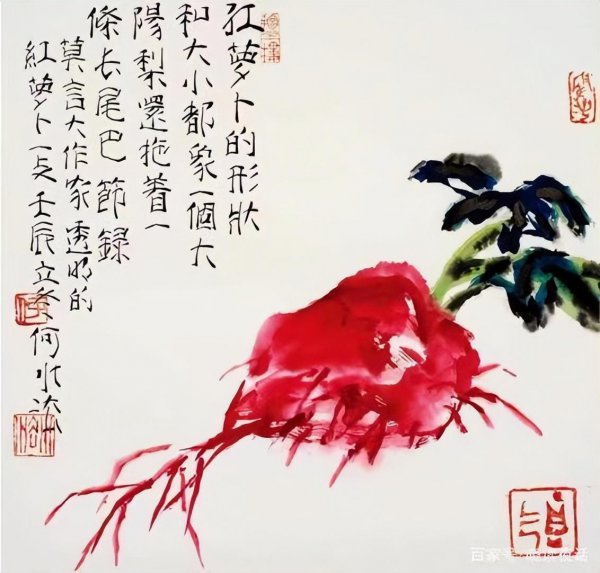 红萝卜的形狀
和大小都象一個大
陽梨還拖着一
條长尾巴節録
莫言大作家透明的
紅萝卜一 壬辰立 何水法
百家号